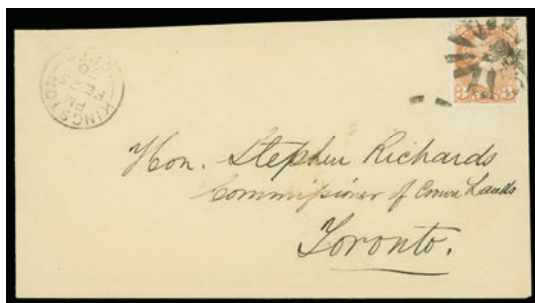 KINGSTON
Hon. Stephen Richards
Commissioner of Crown Lands
Toronto.